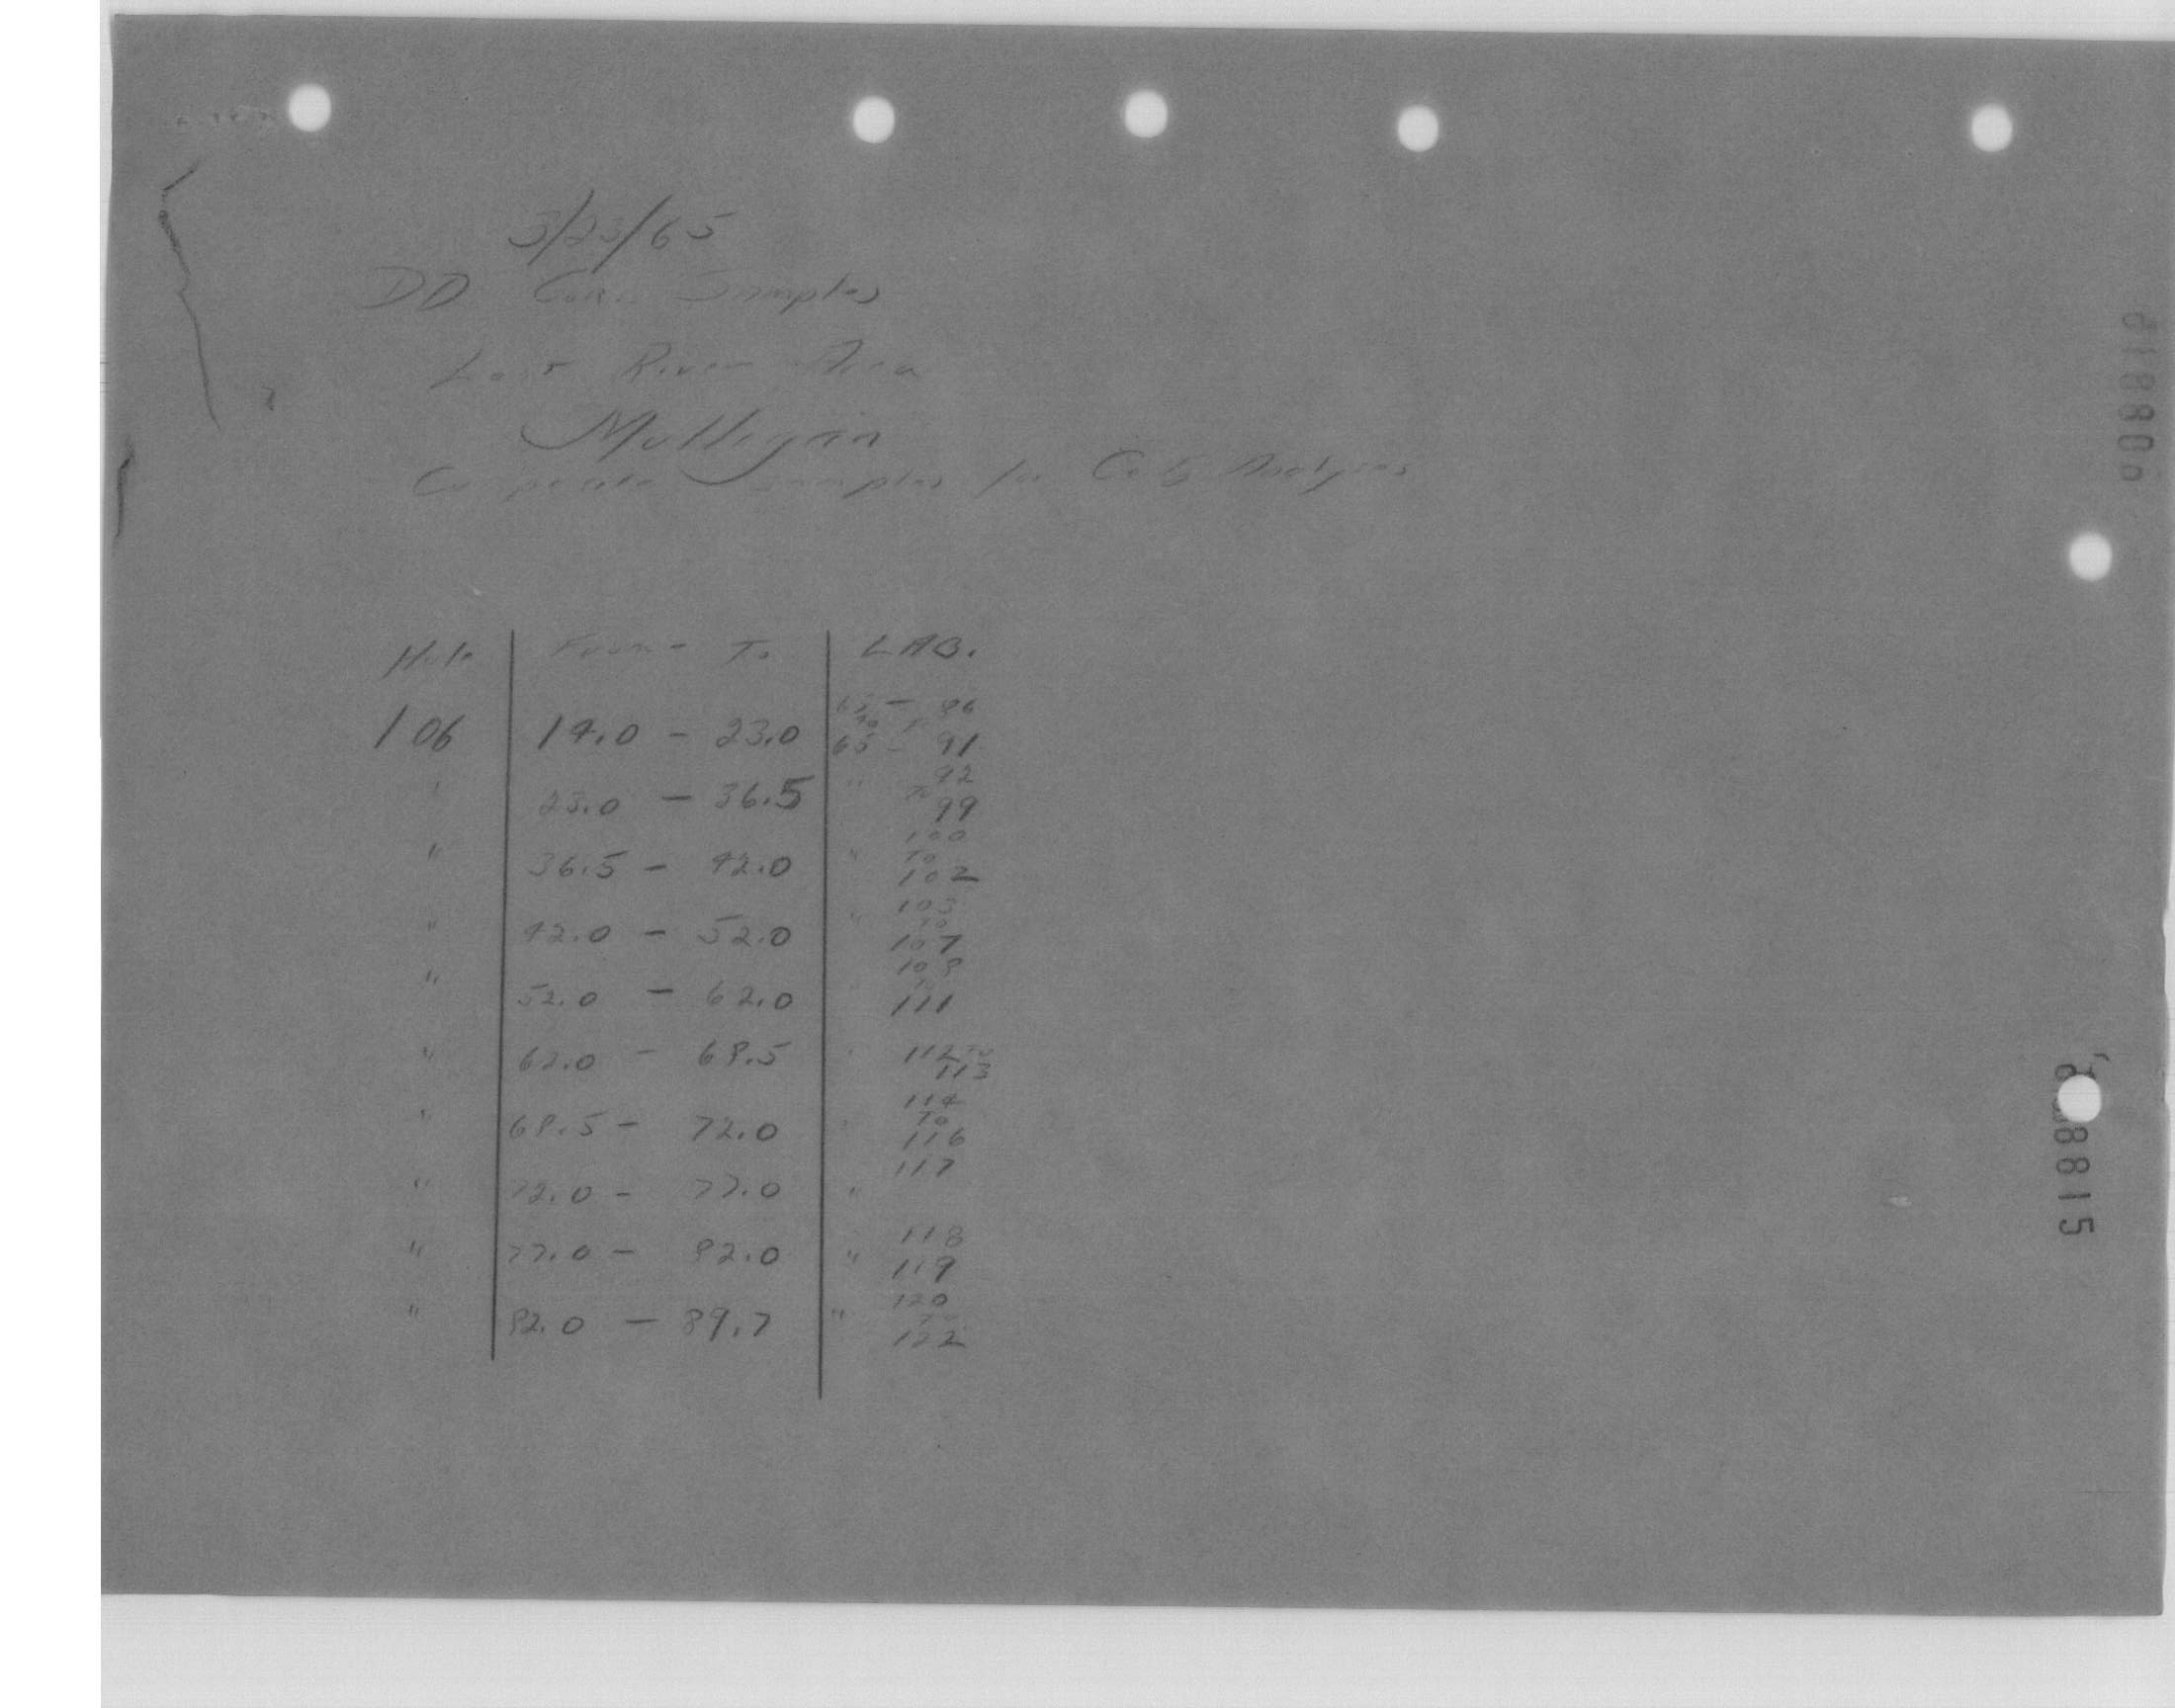 3/23/65
DD Core Samples
Lost River Area
Mulligan
Composite Samples for Analyses
Hole From - To LAB.
65 - 86
To
106 14.0 - 23.0 65 - 91
92
" 23.0 - 36.5 " To
99
100
" 36.5 - 42.0 " To
102
103
" 42.0 - 52.0 " To
107
108
" 52.0 - 62.0 " To
111
" 62.0 - 68.5 " 112 To
113
114
" 68.5 - 72.0 " To
116
117
" 72.0 - 77.0 "
118
" 77.0 - 82.0 " 119
120
" 82.0 - 89.7 " To
122